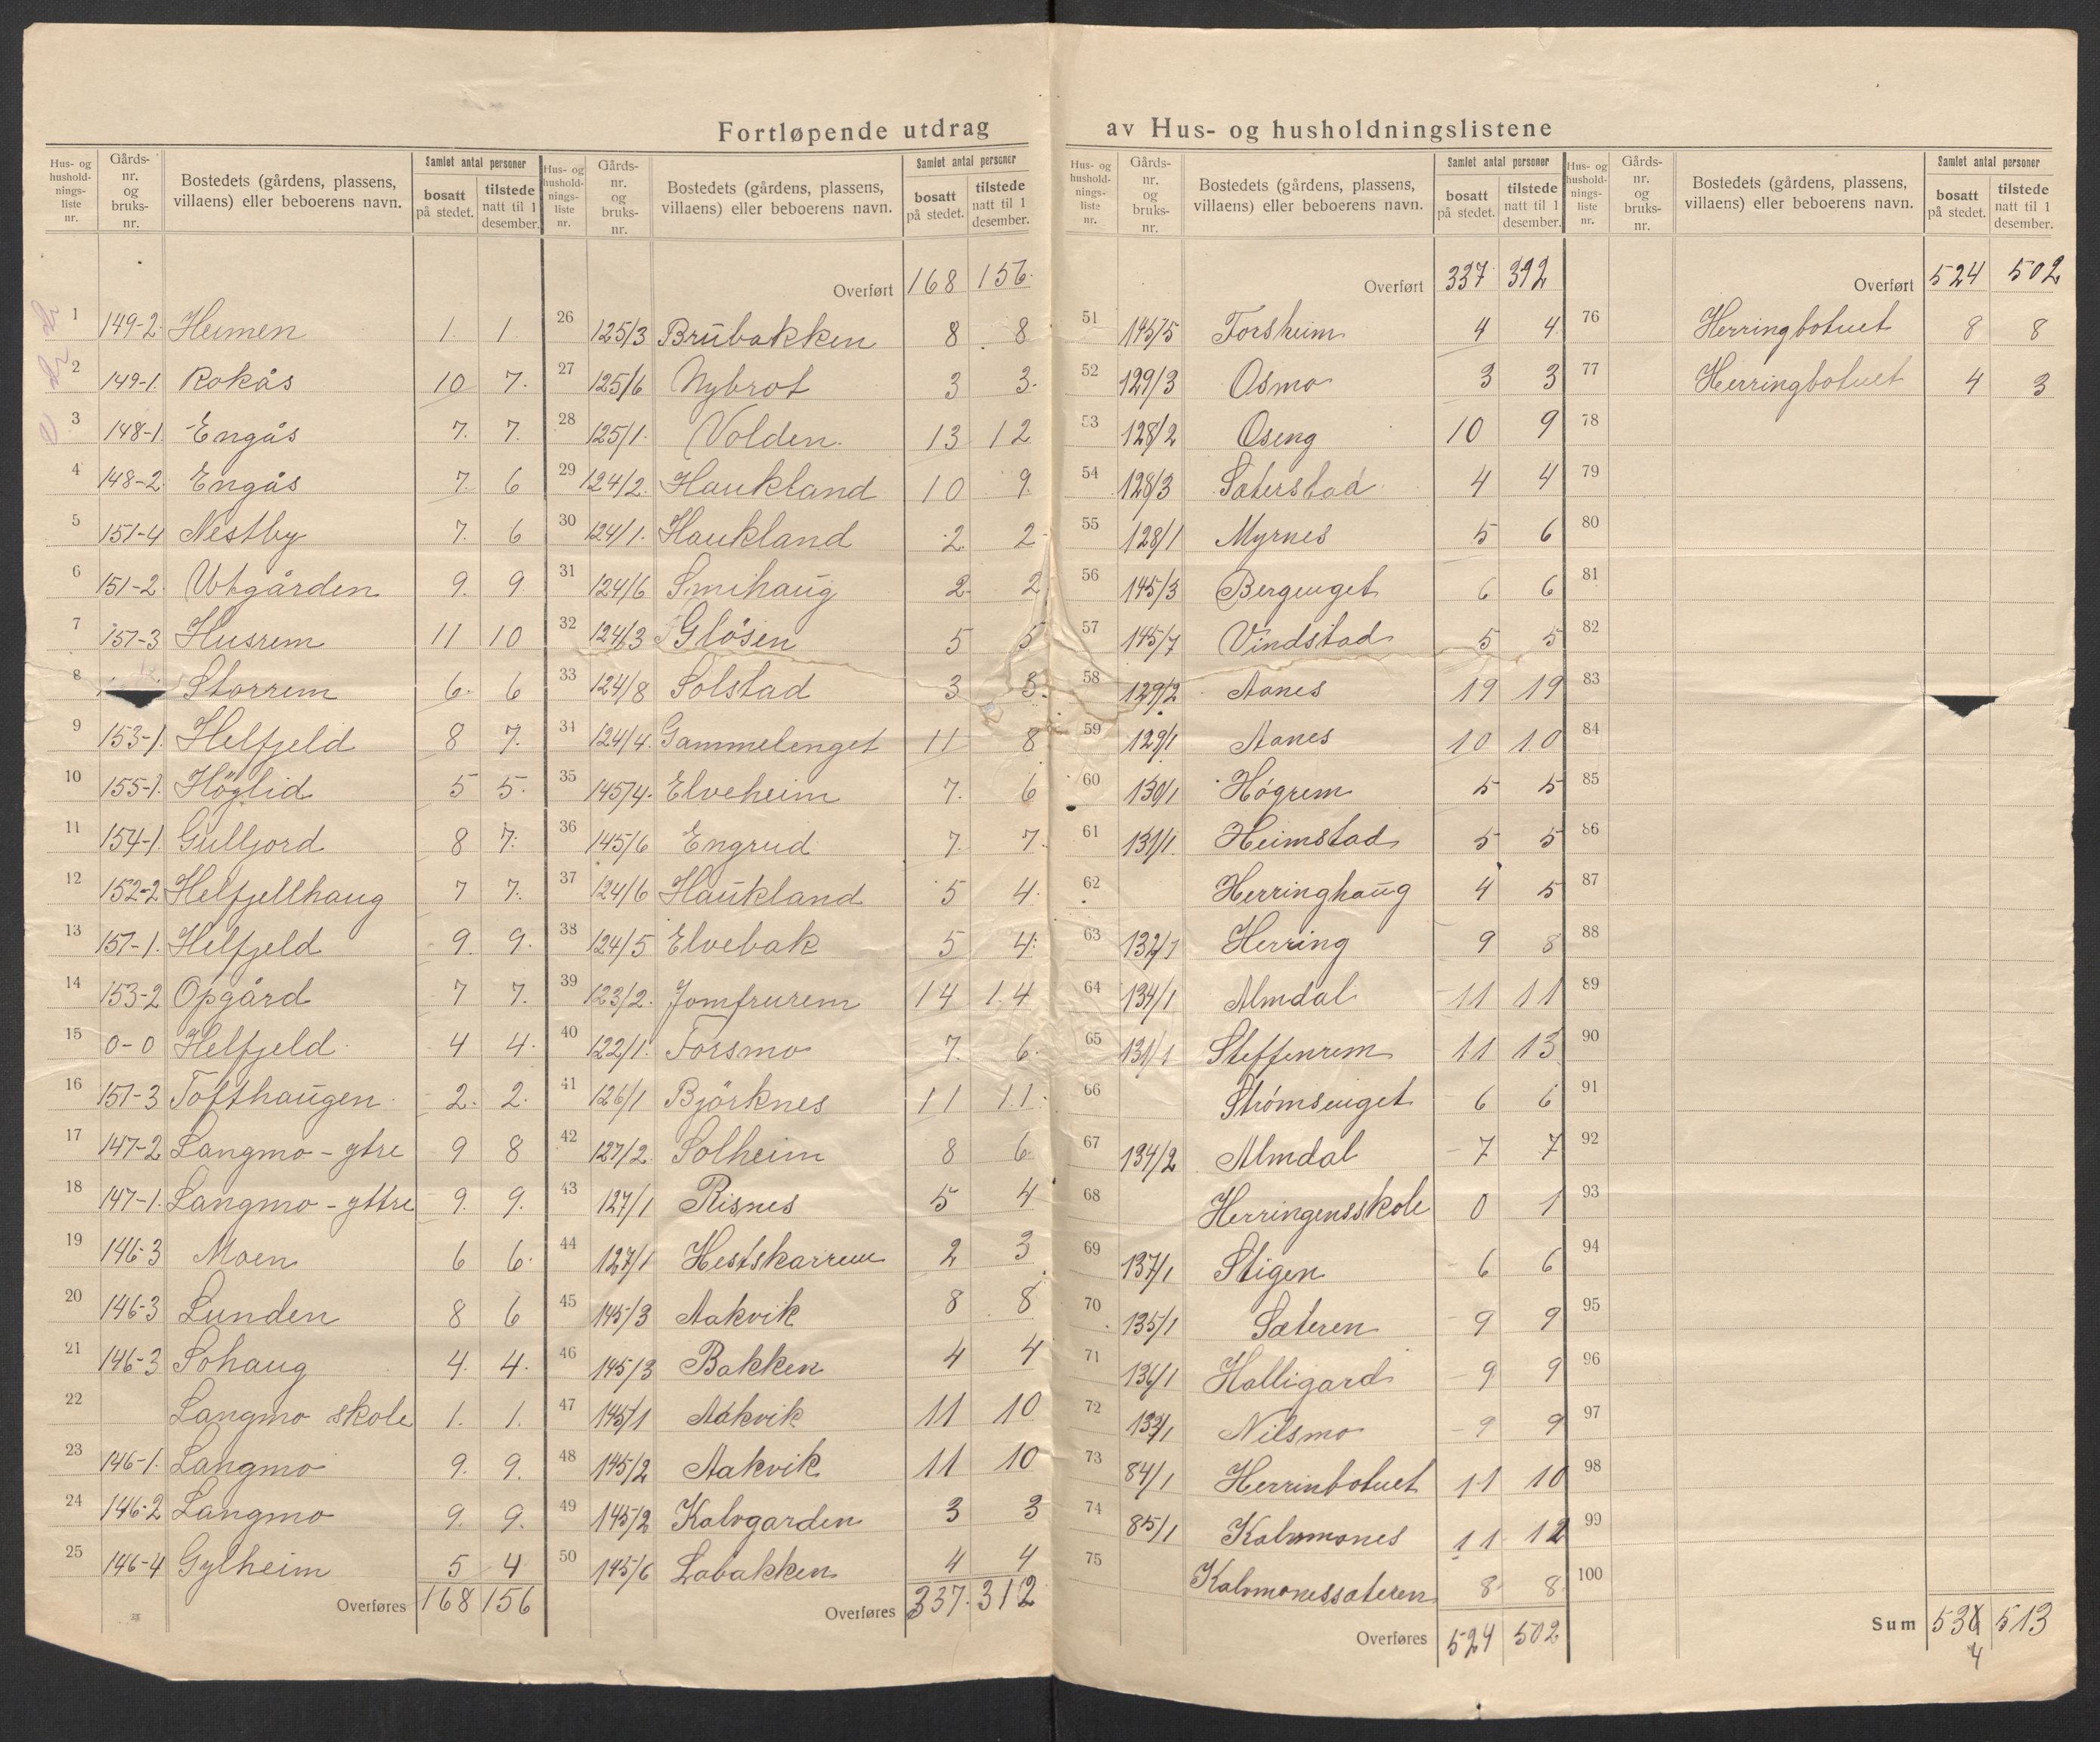 Fortløpende utdrag av Hus- og husholdningslistene
Hus- og hushold-nings-liste nr. Gårds-nr. og bruks-nr. Bostedets (gårdens, plassens, villaens) eller beboerens navn. Samlet antal personer bosatt på stedet. tilstede natt til 1 desember.
1 149-2 Heimen 1. 1.
2 149-1. Rokås 10 7.
3 148-1. Engås 7. 7.
4 148-2. Engås 7. 6
5 151-4 Nestby 7. 6
6 151-2. Utgården 9. 9
7 151-3 Husrem 11 10
8 Storrem 6. 6
9 153-1. Helfjeld 8 7.
10 155-1. Höglid 5 5.
11 154-1. Gulljord 8 7.
12 152-2 Helfjellhaug 7 7.
13 151-1. Helfjeld 9. 9.
14 153-2 Opgård 7 7.
15 0-0 Helfjeld 4 4.
16 151-3 Tofthaugen 2. 2.
17 147-2 Langmo - ytre 9 8
18 147-1. Langmo - yttre 9. 9.
19 146-3 Moen 6 6.
20 146-3 Lunden 8 6
21 146-3 Sohaug 4. 4.
22 Langmo skole 1. 1.
23 146-1. Langmo 9. 9.
24 146-2 Langmo 9. 9.
25 146-4 Gylheim 5 4
Overføres 168 156
Hus- og hushold-nings-liste nr. Gårds-nr. og bruks-nr. Bostedets (gårdens, plassens, villaens) eller beboerens navn. Samlet antal personer bosatt på stedet. tilstede natt til 1 desember.
Overført 168 156.
26 125/3 Brubakken 8 8
27 125/6 Nybrot 3 3.
28 125/1. Volden. 13 12
29 124/2. Haukland 10 9.
30 124/1. Haukland 2 2
31 124/6 Smihaug 2 2
32 124/3 Glösen 5 5
33 124/8 Solstad 3 3.
34 124/4. Gammelenget 11 8
35 145/4. Elveheim 7. 6
36 145/6 Engrud 7. 7.
37 124/6 Haukland 5 4.
38 124/5 Elvebak 5 4.
39 123/2. Jomfrurem 14 14
40 122/1. Forsmo 7. 6.
41 126/1 Björknes 11 11.
42 127/2. Solheim 8 6.
43 127/1 Risnes 5 4
44 127/1 Hestskarrem 2 3
45 145/3 Aakvik 8 8
46 145/3 Bakken 4 4
47 145/1 Aakvik 11 10
48 145/2 Aakvik 11 10
49 145/2 Kalvgarden 3 3
50 145/6 Labakken 4 4
Overføres 337. 312
Hus- og hushold-nings-liste nr. Gårds-nr. og bruks-nr. Bostedets (gårdens, plassens, villaens) eller beboerens navn. Samlet antal personer bosatt på stedet. tilstede natt til 1 desember.
Overført 337 312
51 145/5 Forsheim 4 4
52 129/3 Osmo 3 3
53 128/2 Oseng 10 9
54 128/3 Sæterstad 4 4
55 128/1 Myrnes 5 6
56 145/3 Bergenget 6 6
57 145/7 Vindstad 5 5
58 129/2 Aanes 19 19
59 129/1 Aanes 10 10
60 130/1 Högrem 5 5
61 131/1. Heimstad 5 5
62 Herringhaug 4 5
63 132/1 Herring 9 8
64 134/1 Almdal 11 11
65 131/1 Steffenrem 11 13
66 Strømsenget 6 6
67 134/2 Almdal 7 7
68 Herringensskole 0 1
69 137/1 Stigen 6 6
70 135/1 Sæteren 9 9
71 136/1 Halligard 9 9
72 Nilsmo 9 9
73 84/1 Herrinbotnet 11 10
74 85/1 Kalvmones 11 12
75 Kalvmonessæteren 8 8
Overføres 524 502
Hus- og hushold-nings-liste nr. Gårds-nr. og bruks-nr. Bostedets (gårdens, plassens, villaens) eller beboerens navn. Samlet antal personer bosatt på stedet. tilstede natt til 1 desember.
Overført 524 502
76 Herringbotnet 8 8
77 Herringbotnet 4 3
78
79
80
81
82
83
84
85
86
87
88
89
90
91
92
93
94
95
96
97
98
99
100
Sum 536 513
4